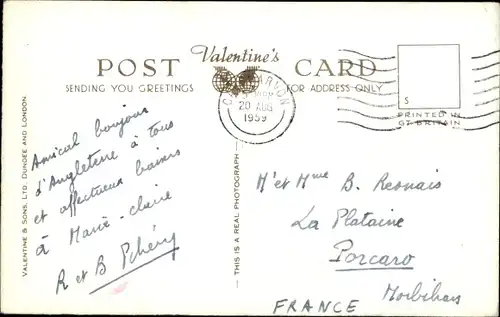 Valentine's
POST CARD
SENDING YOU GREETINGS
FOR ADDRESS ONLY
20 AUG
1959
S
PRINTED IN
GT BRITAIN
VALENTINE & SONS, LTD. DUNDEE AND LONDON.
THIS IS A REAL PHOTOGRAPH
Amical bonjour
d'Angleterre à tous
et affectueux baisers
à Marie-Claire
R et B
M et Mme B. Resnais
La Plataine
Porcaro
Morbihan
FRANCE